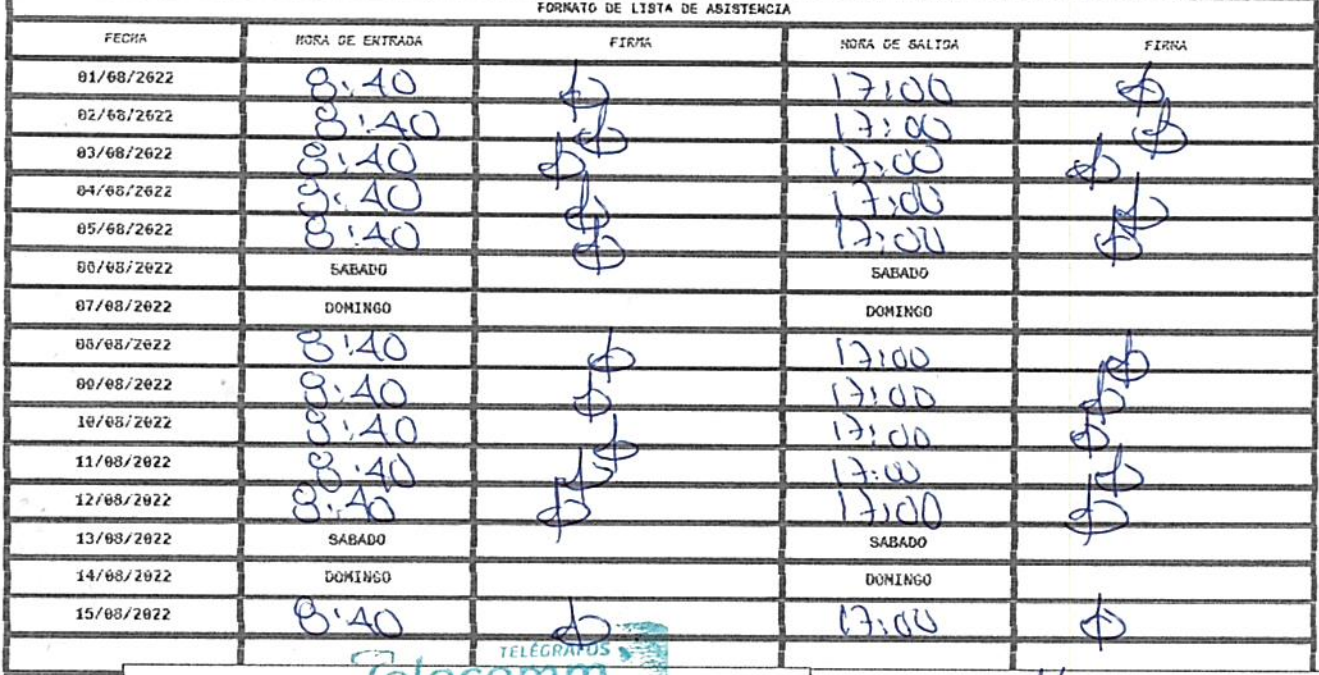 FORMATO DE LISTA DE ASISTENCIA
FECHA HORA DE ENTRADA FIRMA HORA DE SALIDA FIRMA
01/08/2022 8:40 17:00
02/08/2022 8:40 17:00
03/08/2022 8:40 17:00
04/08/2022 8:40 17:00
05/08/2022 8:40 17:00
06/08/2022 SABADO SABADO
07/08/2022 DOMINGO DOMINGO
08/08/2022 8:40 17:00
09/08/2022 8:40 17:00
10/08/2022 8:40 17:00
11/08/2022 8:40 17:00
12/08/2022 8:40 17:00
13/08/2022 SABADO SABADO
14/08/2022 DOMINGO DOMINGO
15/08/2022 8:40 17:00
TELÉGRAFOS
Telecomm